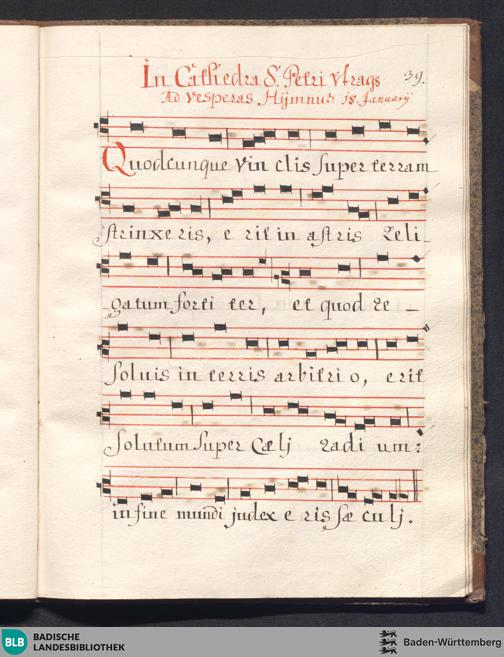 In Cathedra S. Petri vtrags 39.
Ad Vesperas Hijmnus 18. Januarij
Quodcunque vin clis super terram
strinxeris, e rit in astris reli_
gatum forti ter, et quod re _
soluis in terris arbitri o, erit
solutum super Cælj radi um:
in fine mundi judex e ris sæ culj.
BLB BADISCHE
LANDESBIBLIOTHEK
Baden-Württemberg